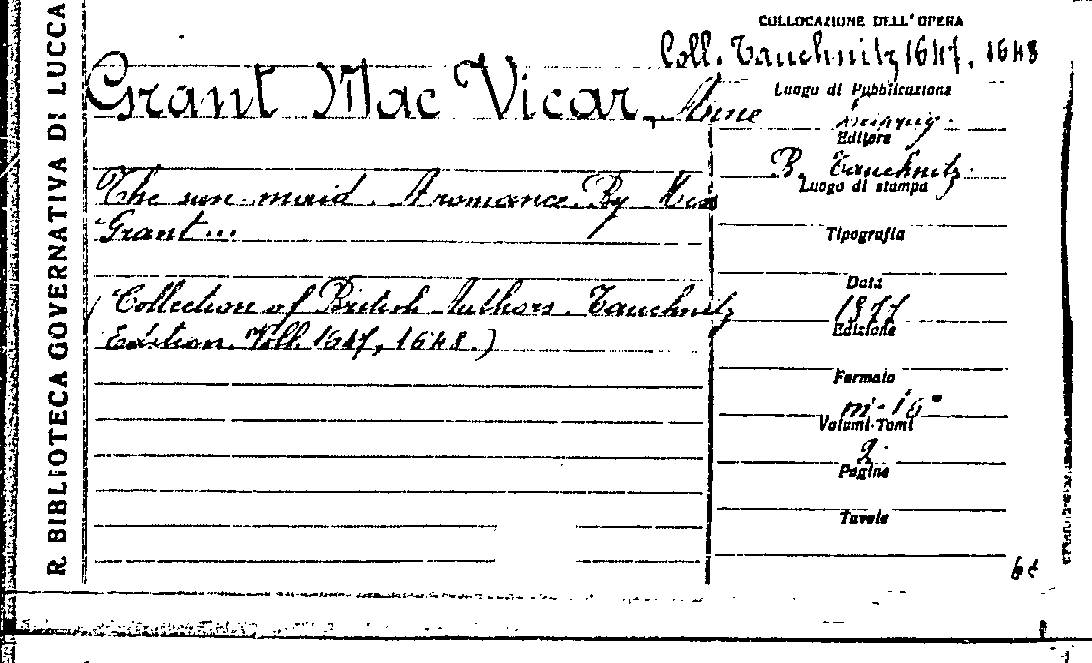 R. BIBLIOTECA GOVERNATIVA DI LUCCA
COLLOCAZIONE DELL'OPERA
Coll. Tauchnitz 1647, 1648
Grant Mac Vicar, Anne
The sun-maid. A romance. By Miss
Grant...
(Collection of British Authors. Tauchnitz
Edition. Voll. 1647, 1648.)
Luogo di Pubblicazione
Editore
B. Tauchnitz.
Luogo di stampa
Tipografia
Data
1877
Edizione
Formato
in-16°
Volumi-Tomi
2.
Pagine
Tavole